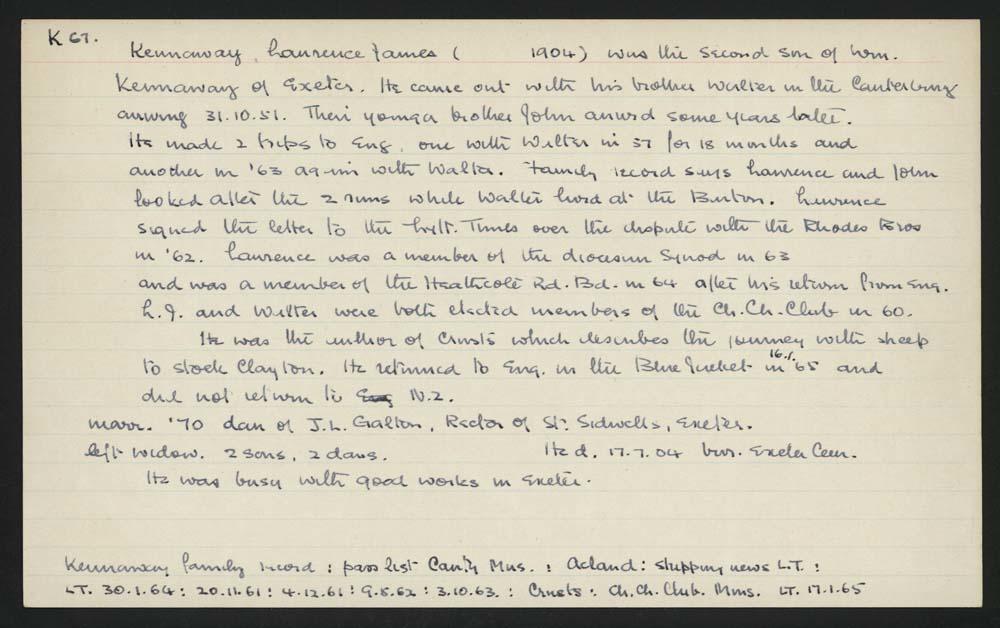 K 67.
Kennaway, Laurence James ( 1904) was the second son of Wm.
Kennaway of Exeter. He came out with his brother Walter in the Canterbury
arriving 31.10.51. Their younger brother John arrived some years later.
He made 2 trips to Eng, one with Walter in 57 for 18 months and
another in '63 again with Walter. Family record says Laurence and John
looked after the 2 runs while Walter lived at the Burton. Laurence
signed the letter to the Lytt. Times over the dispute with the Rhodes Bros
in '62. Laurence was a member of the diocesan Synod in 63
and was a member of the Heathcote Rd. Bd. in 64 after his return from Eng.
L.J. and Walter were both elected members of the Ch.Ch. Club in 60.
He was the author of Crusts which describes the journey with sheep
to stock Clayton. He returned to Eng. in the Blue Jacket in 16.1.'65 and
did not return to Eng N.Z.
marr. '70 dau of J.L. Galton, Rector of St. Sidwells, Exeter.
left widow. 2 sons, 2 daus. He d. 17.7.04 bur. Exeter Cem.
He was busy with good works in Exeter.
Kennaway family record : pass list Cant'y Mus. : Acland : shipping news L.T. :
L.T. 30.1.64 : 20.11.61 : 4.12.61 : 9.8.62 : 3.10.63. : Crusts : Ch.Ch. Club. Mms. LT. 17.1.65